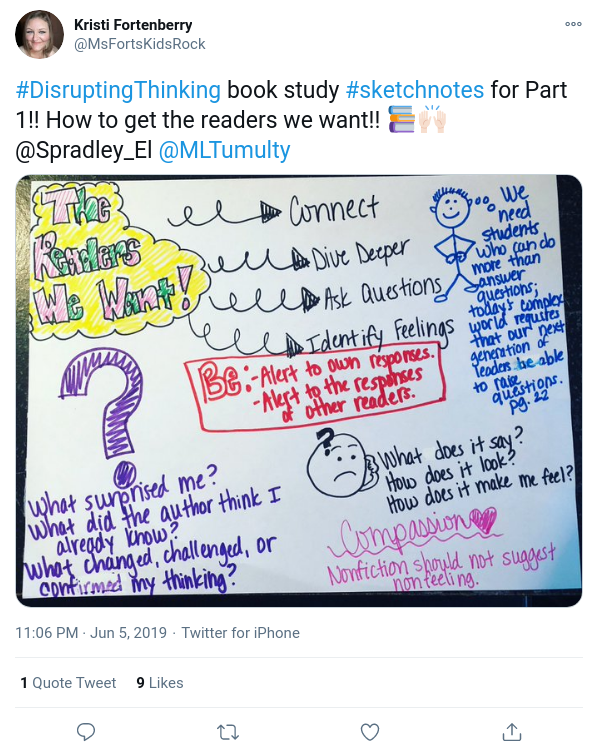 Kristi Fortenberry
@MsFortsKidsRock
#DisruptingThinking book study #sketchnotes for Part
1!! How to get the readers we want!! 📚🙌🏻
@Spradley_El @MLTumulty
The
Readers
We Want!
Connect
Dive Deeper
Ask Questions
Identify Feelings
We
need
students
who can do
more than
answer
questions;
today's complex
world requires
that our next
generation of
leaders be able
to raise
questions.
pg. 22
Be:-Alert to own responses.
-Alert to the responses
of other readers.
?
What surprised me?
What did the author think I
already know?
What changed, challenged, or
confirmed my thinking?
?
What does it say?
How does it look?
How does it make me feel?
Compassion
Nonfiction should not suggest
nonfeeling.
11:06 PM · Jun 5, 2019 · Twitter for iPhone
1 Quote Tweet 9 Likes